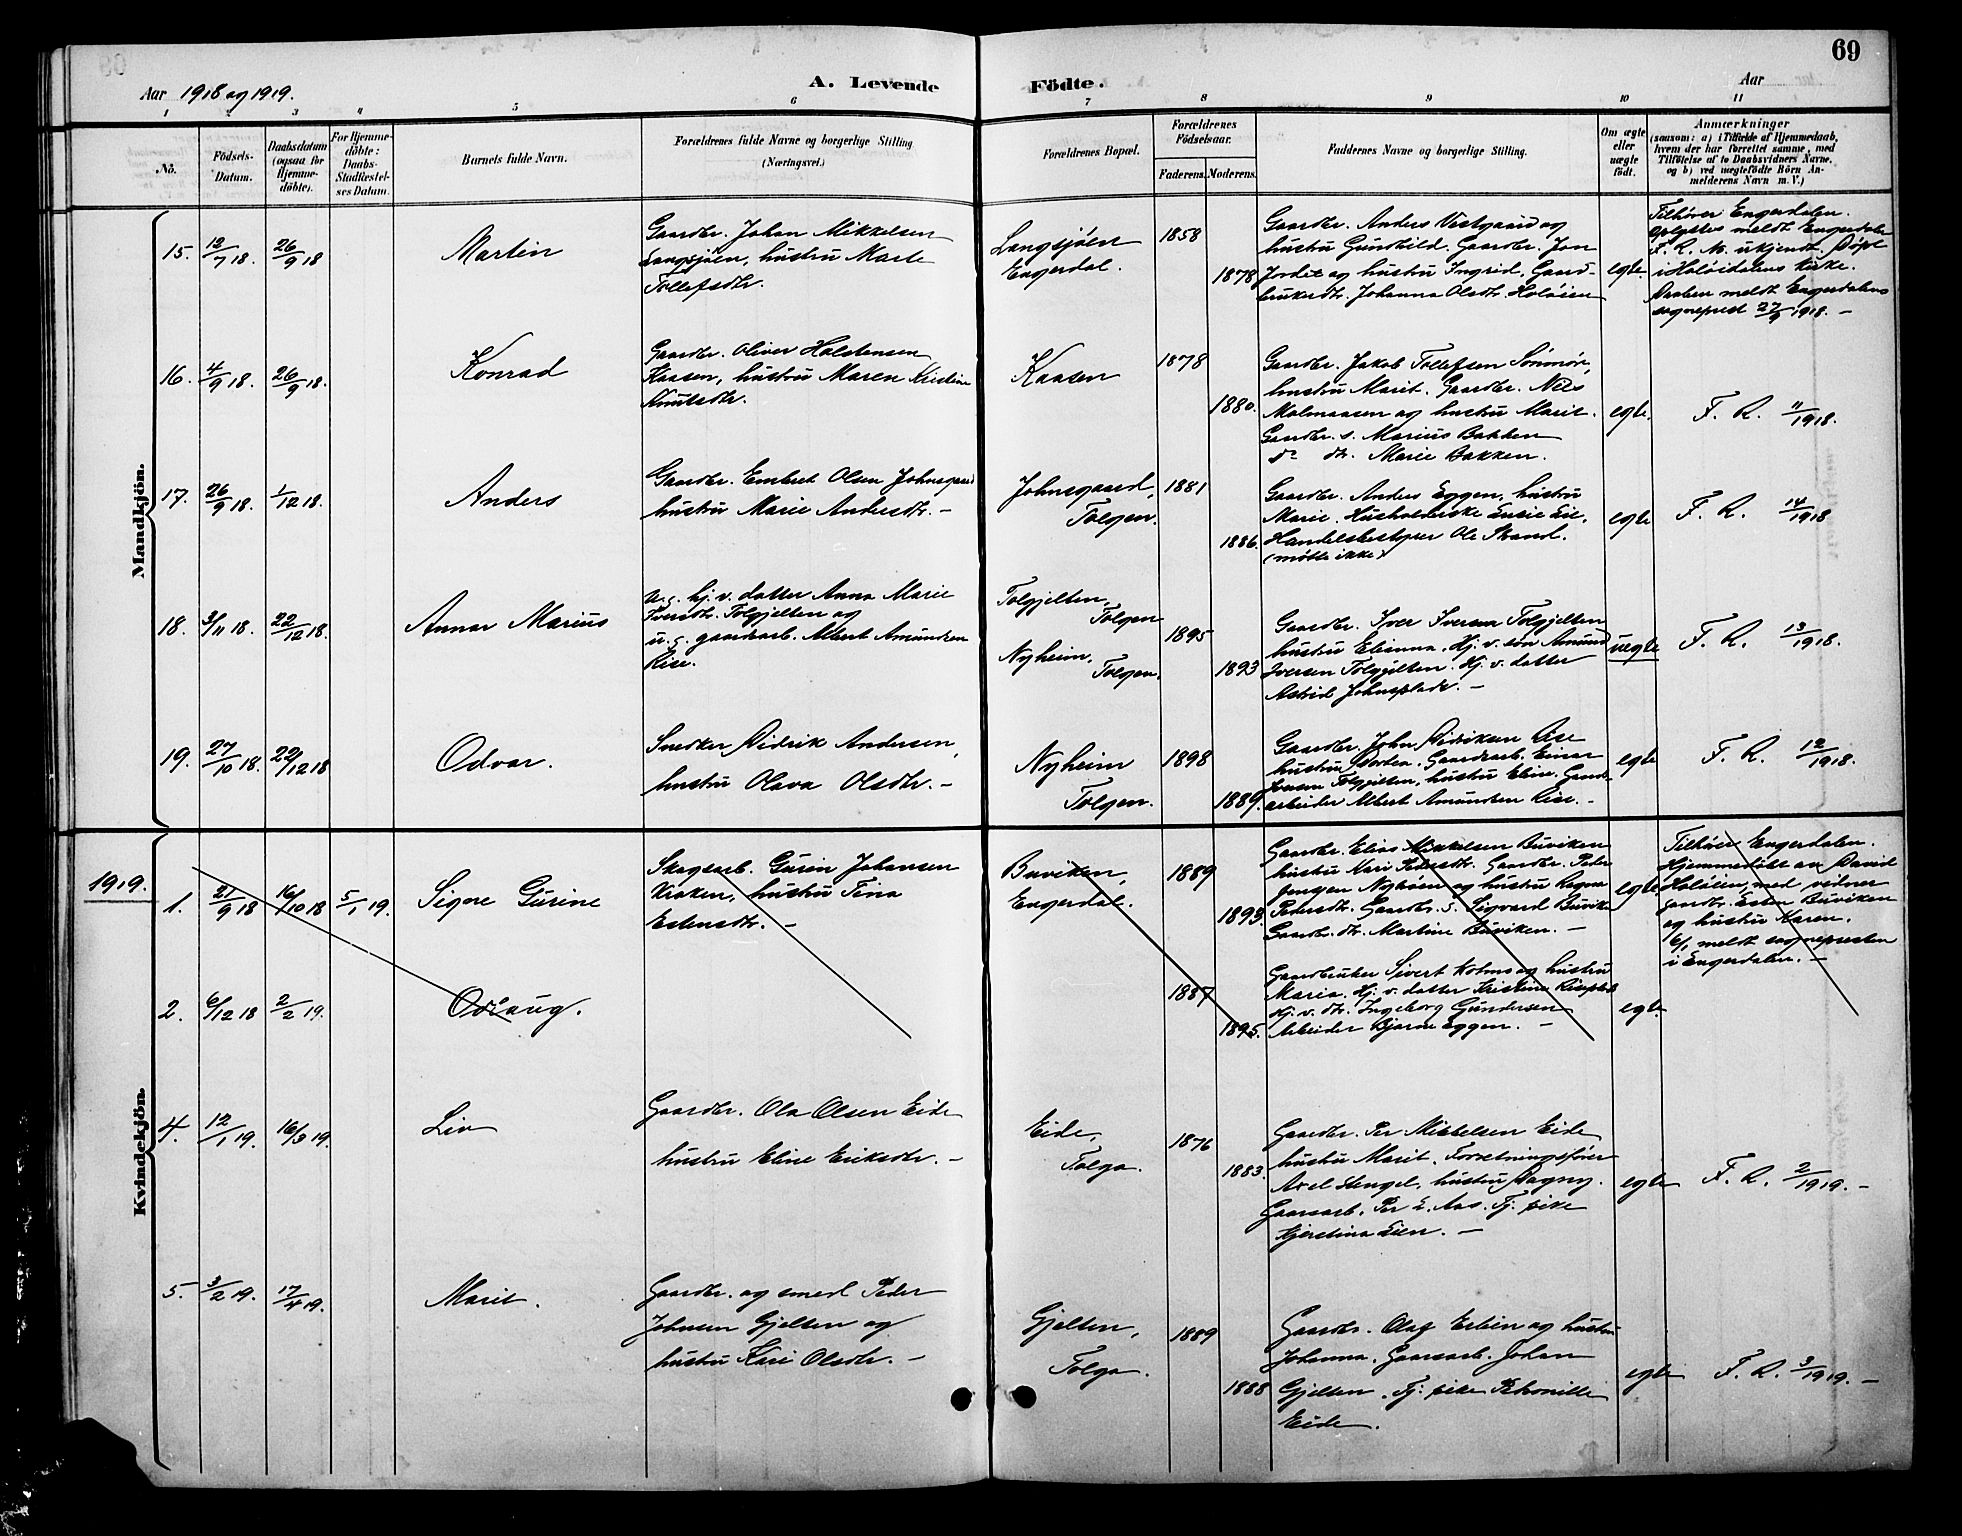 69
Aar 1918 og 1919.
A. Levende Födte.
Aar
1 2 3 4 5 6 7 8 9 10 11
No.
Födsels-
Datum.
Daabsdatum
(ogsaa for
Hjemme-
döbte).
For Hjemme-
döbte:
Daabs-
Stadfæstel-
ses Datum.
Barnets fulde Navn.
Forældrenes fulde Navne og borgerlige Stilling
(Næringsvei.)
Forældrenes Bopæl.
Forældrenes
Födselsaar.
Faderens. Moderens.
Faddernes Navne og borgerlige Stilling.
Om ægte
eller
uægte
födt.
Anmærkninger
(saasom: a) i Tilfælde af Hjemmedaab,
hvem der har forrettet samme, med
Tilföielse af to Daabsvidners Navne,
og b) ved uægtefödte Börn An-
melderens Navn m. V.)
Mandkjön.
15. 12/7 18. 26/9 18
Martin
Gaardbr. Johan Mikkelsen
Langsjøen, hustru Marte
Tollefsdtr.
Langsjøen
Engerdal.
1858
1878
Gaardbr. Anders Vestgaard og
hustru Gunhild. Gaardbr. Jon
Jordet og hustru Ingrid. Gaard-
brukerdtr. Johanna Olsdtr. Holøien
egte
Tilhører Engerdalen.
oplyttes meldt Engerdalen
F. R. No. ukjendt. Døpt
i Holøidalens kirke.
Daaben meldt Engerdalens
sogneprest 27/9 1918. –
16. 4/9 18. 26/9 18.
Konrad
Gaardbr. Oliver Halstensen
Kaasen, hustru Maren Kristine
Knutsdtr.
Kaasen
1878
1880.
Gaardbr. Jakob Tollefsen Sømmør,
hustru Marit. Gaardbr. Nils
Malmaasen og hustru Marit.
Gaardbr. s. Marius Bakken
do dtr. Marie Bakken.
egte.
F. R. 11/1918.
17. 26/9 18. 1/12 18.
Anders
Gaardbr. Embret Olsen Johnsgaard
hustru Marie Andersdtr. –
Johnsgaard,
Tolgen.
1881
1886.
Gaardbr. Anders Eggen, hustru
Marie. Husholderske
Handelsbestyrer Ole Strand.
(møtte ikke)
egte
F. R. 14/1918
18. 3/11 18. 22/12 18.
Annar Marius
u. g. hj. v. datter Anna Marie
Iversdtr. Tolgjelten og
u. g. gaardarb. Albert Amundsen
Rise.
Tolgjelten,
Tolgen
Nyheim,
Tolgen.
1895
1893
Gaardbr. Iver Iversen Tolgjelten
hustru Elianna. Hj. v. søn Amund
Iversen Tolgjelten. Hj. v. datter
Astrid Johnsplads. –
uegte
F. R. 13/1918.
19. 27/10 18. 22/12 18
Odvar.
Snedker Didrik Andersen,
hustru Olava Olsdtr. –
Nyheim
Tolgen.
1898
1889.
Gaardbr. John Didriksen Rise
hustru Dordea. Gaardarb. Einar
Iversen Tolgjelten, hustru Eline. Gaard-
arbeider Albert Amundsen Rise. –
egte
F. R. 12/1918.
1919.
Kvindekjön.
1. 21/9 18 16/10 18 5/1 19.
Signe Gurine
Skogsarb. Gurin Johansen
Kraken, hustru Tina
Estensdtr. –
Buviken,
Engerdal.
1889
1893.
Gaardbr. Elias Mikkelsen Buviken
hustru Kari Pedersdtr. Gaardbr. Peder
Jonsen Nyhøien og hustru Ragna
Pedersdtr. Gaardbr. s. Sigvard Buviken
Gaardbr. dtr. Martine Buviken. –
egte
Tilhører Engerdalen.
Hjemmedøbt av David
Holøien, med vidner
gaardb. Esten Buviken
og hustru Karen.
6/1 meldt sognepresten
i Engerdalen. –
2. 6/12 18 2/2 19.
Odlaug.
1887
1895.
Gaardbruker Sivert Holm og hustru
Maria. Hj. v. datter Kristine
Hj. v. dtr. Ingeborg Gundersen
Arbeider Bjarne Eggen. –
egte
4. 12/1 19. 16/3 19.
Liv
Gaardbr. Ola Olsen Eide
hustru Eline Eriksdtr. –
Eide,
Tolga.
1876
1883.
Gaardbr. Per Mikkelsen Eide
hustru Marit. Forretningsfører
Axel Stengel, hustru Dagny.
Gaardsarb. Per E. Aas. Tj. pike
Kjerstina Lien. –
egte
F. R. 2/1919. –
5. 3/2 19. 17/4 19.
Marit.
Gaardbr. og smed Peder
Johnsen Gjelten og
hustru Kari Olsdtr. –
Gjelten,
Tolga.
1889
1888
Gaardbr. Olaf Erlien og hustru
Johanna. Gaardsarb. Johan
Gjelten. Tj. pike Petronille
Eide.
egte
F. R. 3/1919. –